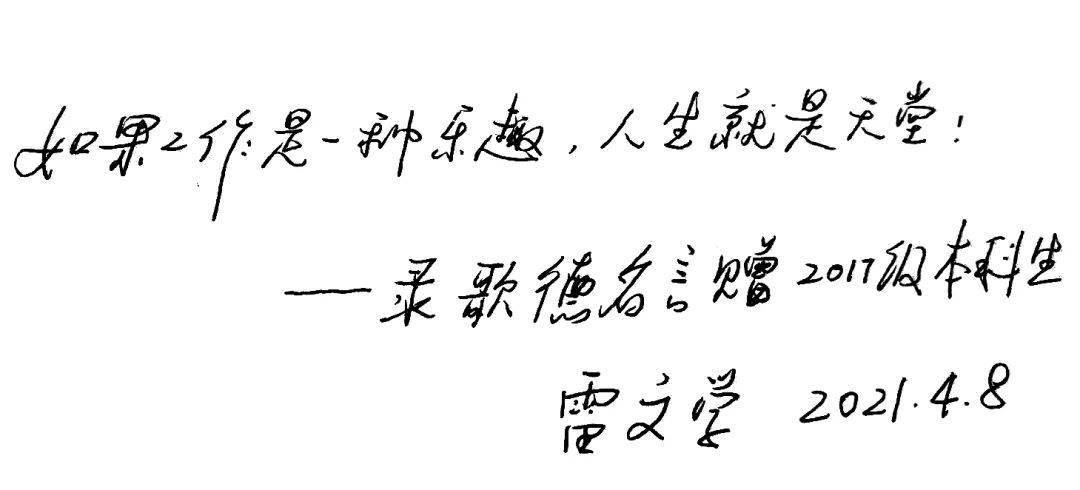 如果工作是一种乐趣，人生就是天堂！
——录歌德名言赠2017级本科生
雷文学 2021.4.8